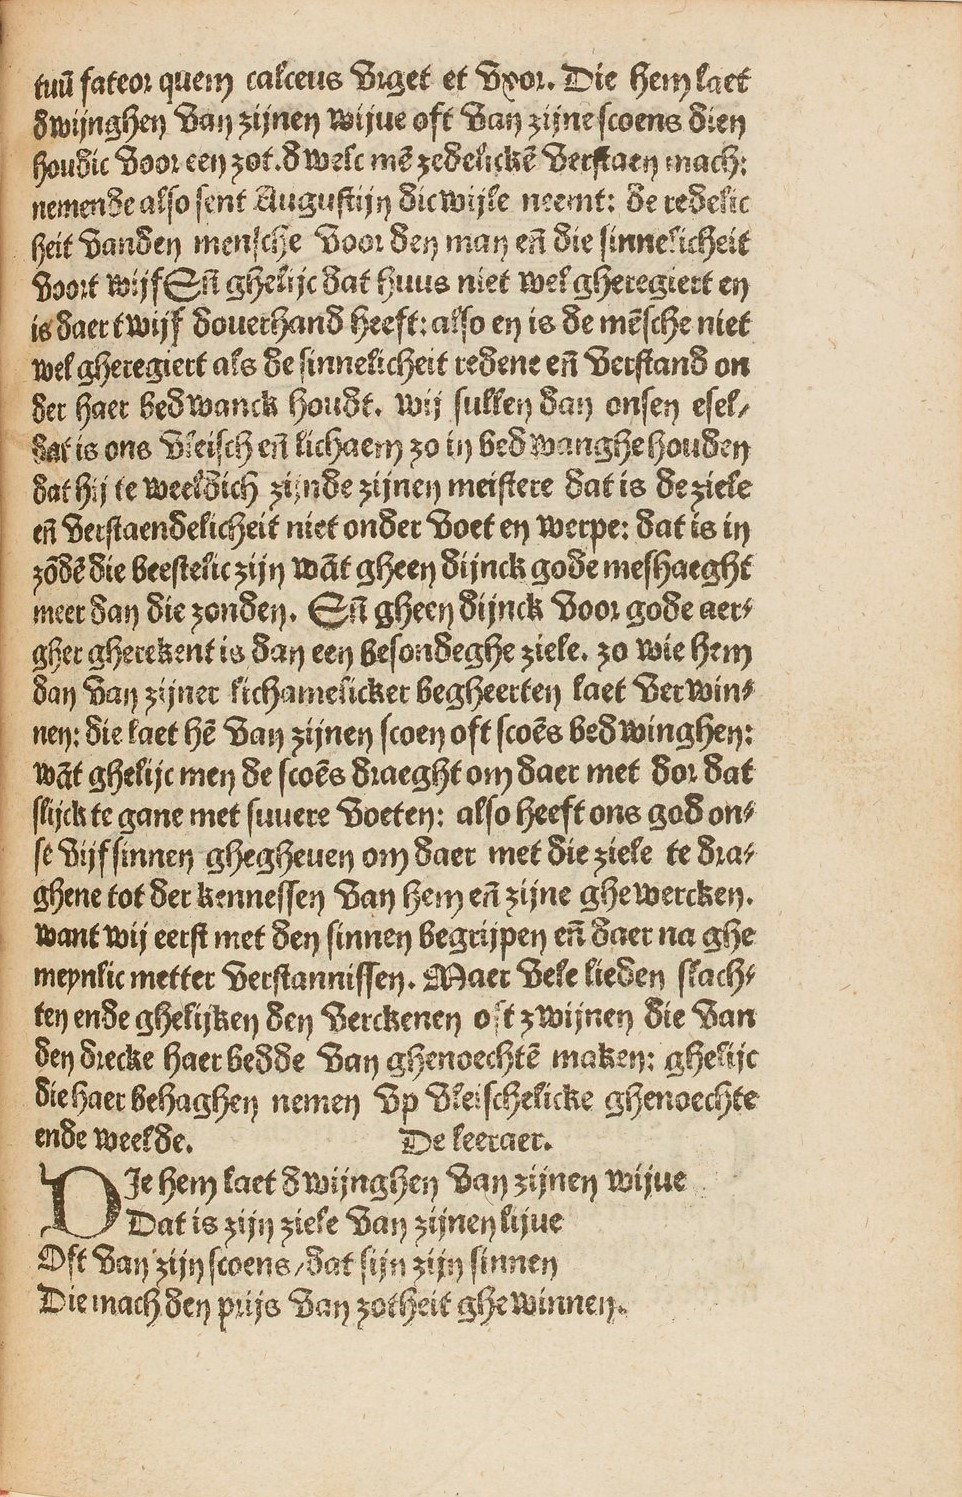 tuū fateor quem calceus vrget et vxor. Die hem laet
dwijnghen van zijnen wijue oft van zijne scoens dien
houdic voor een zot. dwelc mē zedelickē verstaen mach:
nemende also sent Augustijn dicwijle neemt: de redelic
heit vanden mensche voor den man en̄ die sinnelicheit
voort wijf En̄ ghelijc dat huus niet wel gheregiert en
is daer twijf douerhand heeft: also en is de mēsche niet
wel gheregiert als de sinnelicheit redene en̄ verstand on
der haer bedwanck houdt. wij sullen dan onsen esel/
dat is ons vleisch en̄ lichaem zo in bedwanghe houden
dat hij te weeldich zijnde zijnen meistere dat is de ziele
en̄ verstaendelicheit niet onder voet en werpe: dat is in
zōdē die beestelic zijn wāt gheen dijnck gode meshaeght
meer dan die zonden. En̄ gheen dijnck voor gode aer⸗
gher gherekent is dan een besondeghe ziele. zo wie hem
dan van zijner lichamelicker begheerten laet verwin⸗
nen: die laet hē van zijnen scoen oft scoēs bedwinghen:
wāt ghelijc men de scoēs draeght om daer met dor dat
slijck te gane met suuere voeten: also heeft ons god on⸗
se vijf sinnen ghegheuen om daer met die ziele te dra⸗
ghene tot der kennessen van hem en̄ zijne ghewercken.
want wij eerst met den sinnen begrijpen en̄ daer na ghe
meynlic metter verstannissen. Maer vele lieden slach⸗
ten ende ghelijken den verckenen oft zwijnen die van
den drecke haer bedde van ghenoechtē maken: ghelijc
die haer behaghen nemen vp vleischelicke ghenoechte
ende weelde. De leeraer.
DIe hem laet dwijnghen van zijnen wijue
Dat is zijn ziele van zijnen lijue
Oft van zijn scoens/dat sijn zijn sinnen
Die mach den prijs van zotheit ghewinnen.